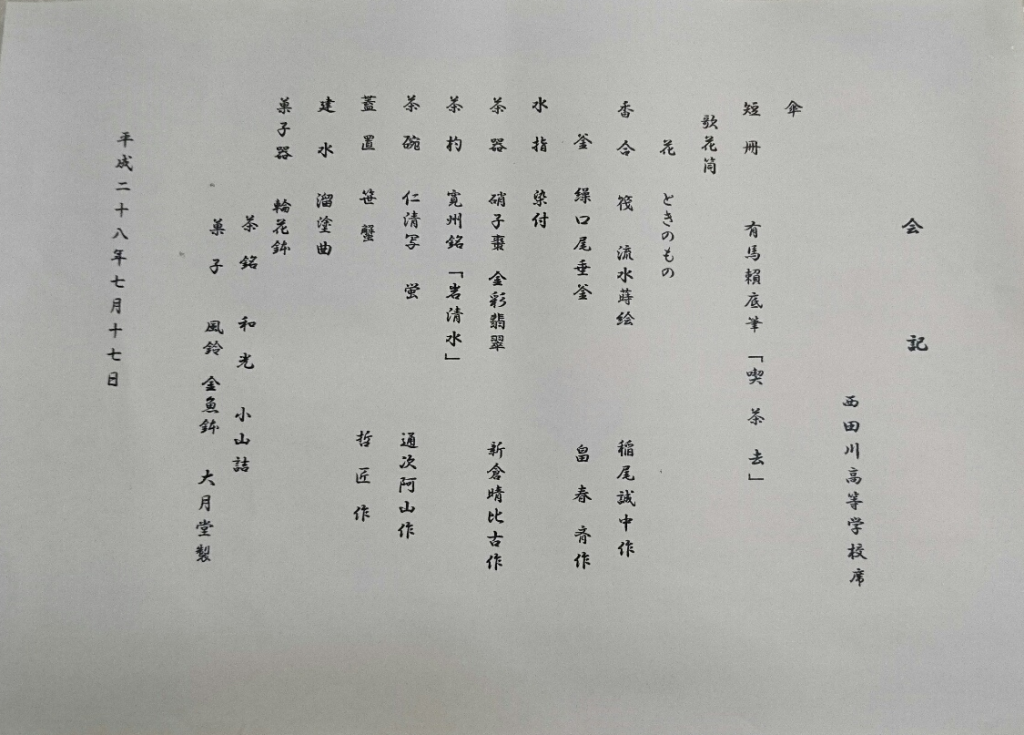 会記
西田川高等学校席
傘
短冊 有馬頼底筆「喫茶去」
歌花筒
花 ときのもの
香合 筏 流水蒔絵 稲尾誠中作
釜 繰口尾垂釜 畠春斉作
水指 染付
茶器 硝子棗 金彩翡翠 新倉晴比古作
茶杓 寛州銘「岩清水」
茶碗 仁清写 蛍 通次阿山作
蓋置 笹蟹 哲匠作
建水 溜塗曲
菓子器 輪花鉢
茶銘 和光 小山詰
菓子 風鈴 金魚鉢 大月堂製
平成二十八年七月十七日